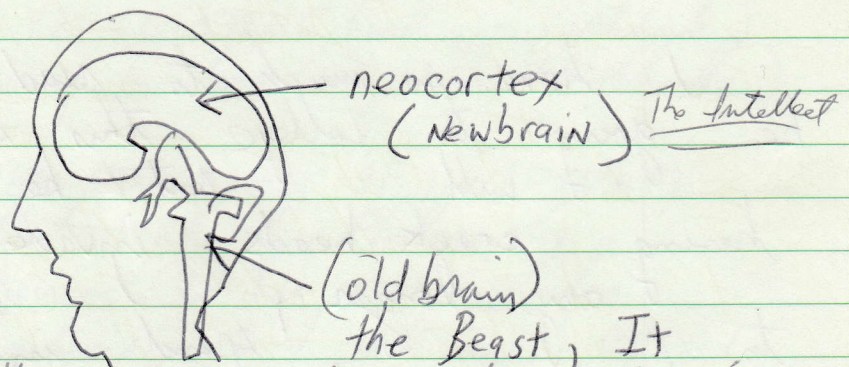 neocortex
(Newbrain) The Intellect
(old brain)
the Beast, It